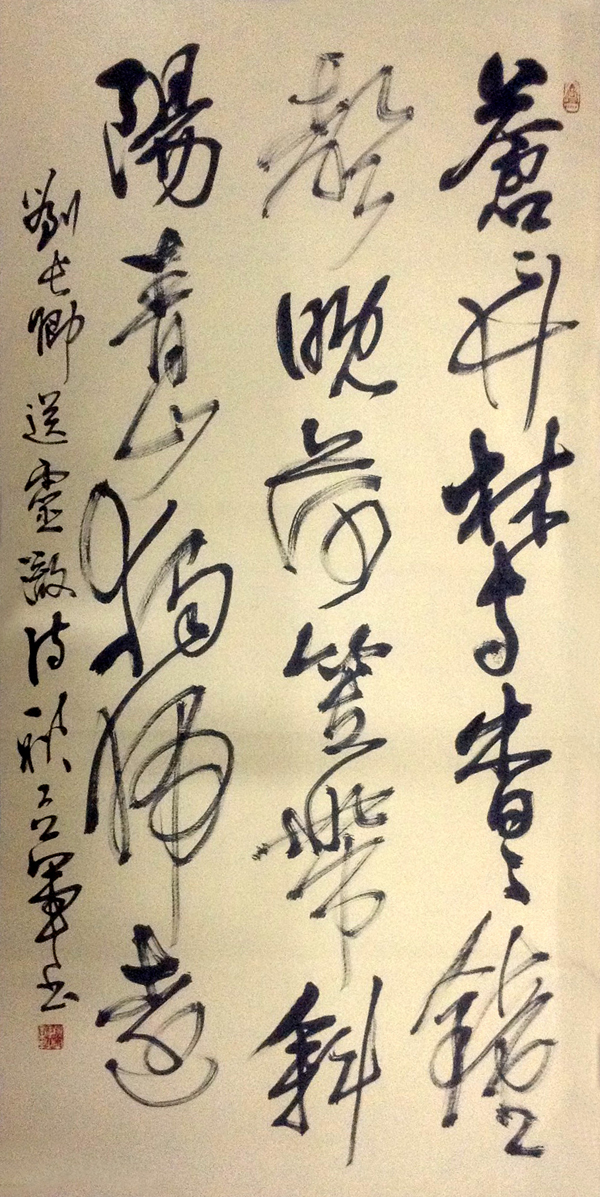 蒼々竹林寺杳々鐘
聲晚荷笠帶斜
陽青山獨歸遠
劉長卿送靈澈詩秋